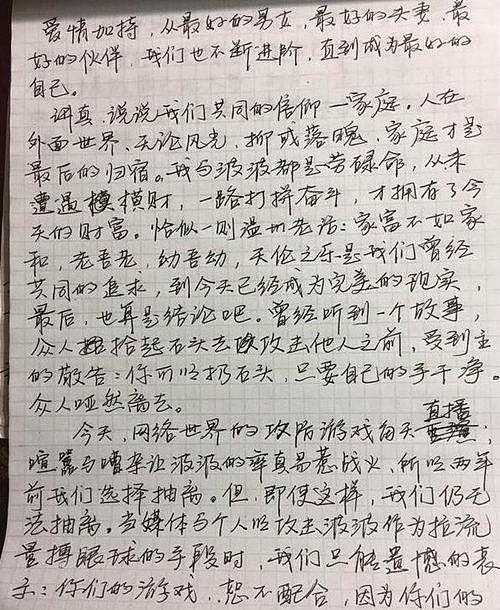 爱情加持，从最好的男女，最好的夫妻，最
好的伙伴，我们也不断进阶，直到成为最好的
自己。
讲真，说说我们共同的信仰—家庭。人在
外面世界，无论风光，抑或落魄，家庭才是
最后的归宿。我与波波都是劳碌命，从未
遭遇横财，一路打拼奋斗，才拥有了今
天的财富。恰似一则温州老话：家富不如家
和，老吾老，幼吾幼，天伦之乐是我们曾经
共同的追求，到今天已经成为完美的现实，
最后，也算是结论吧。曾经听到一个故事，
众人拾起石头去攻击他人之前，受到主
的敬告：你可以扔石头，只要自己的手干净。
众人哑然离去。
今天，网络世界的攻防游戏每天直播，
喧嚣与嘈杂让波波的率真易惹战火，所以两年
前我们选择抽离。但，即使这样，我们仍无
法抽离。当媒体与个人以攻击波波作为拉流
量搏眼球的手段时，我们只能遗憾的表
示：你们的游戏，恕不配合，因为你们的